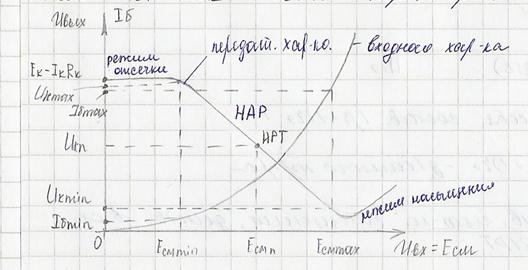 Uвых Iб
режим
отсечки
передат. хар-ка.
входная хар-ка
Eк-IкRк
Uкmax
Iбmax
НАР
НРТ
Uкп
Uкmin
Iбmin
режим насыщения
0
Eсмmin
Eсмп
Eсмmax
Uвх = Eсм